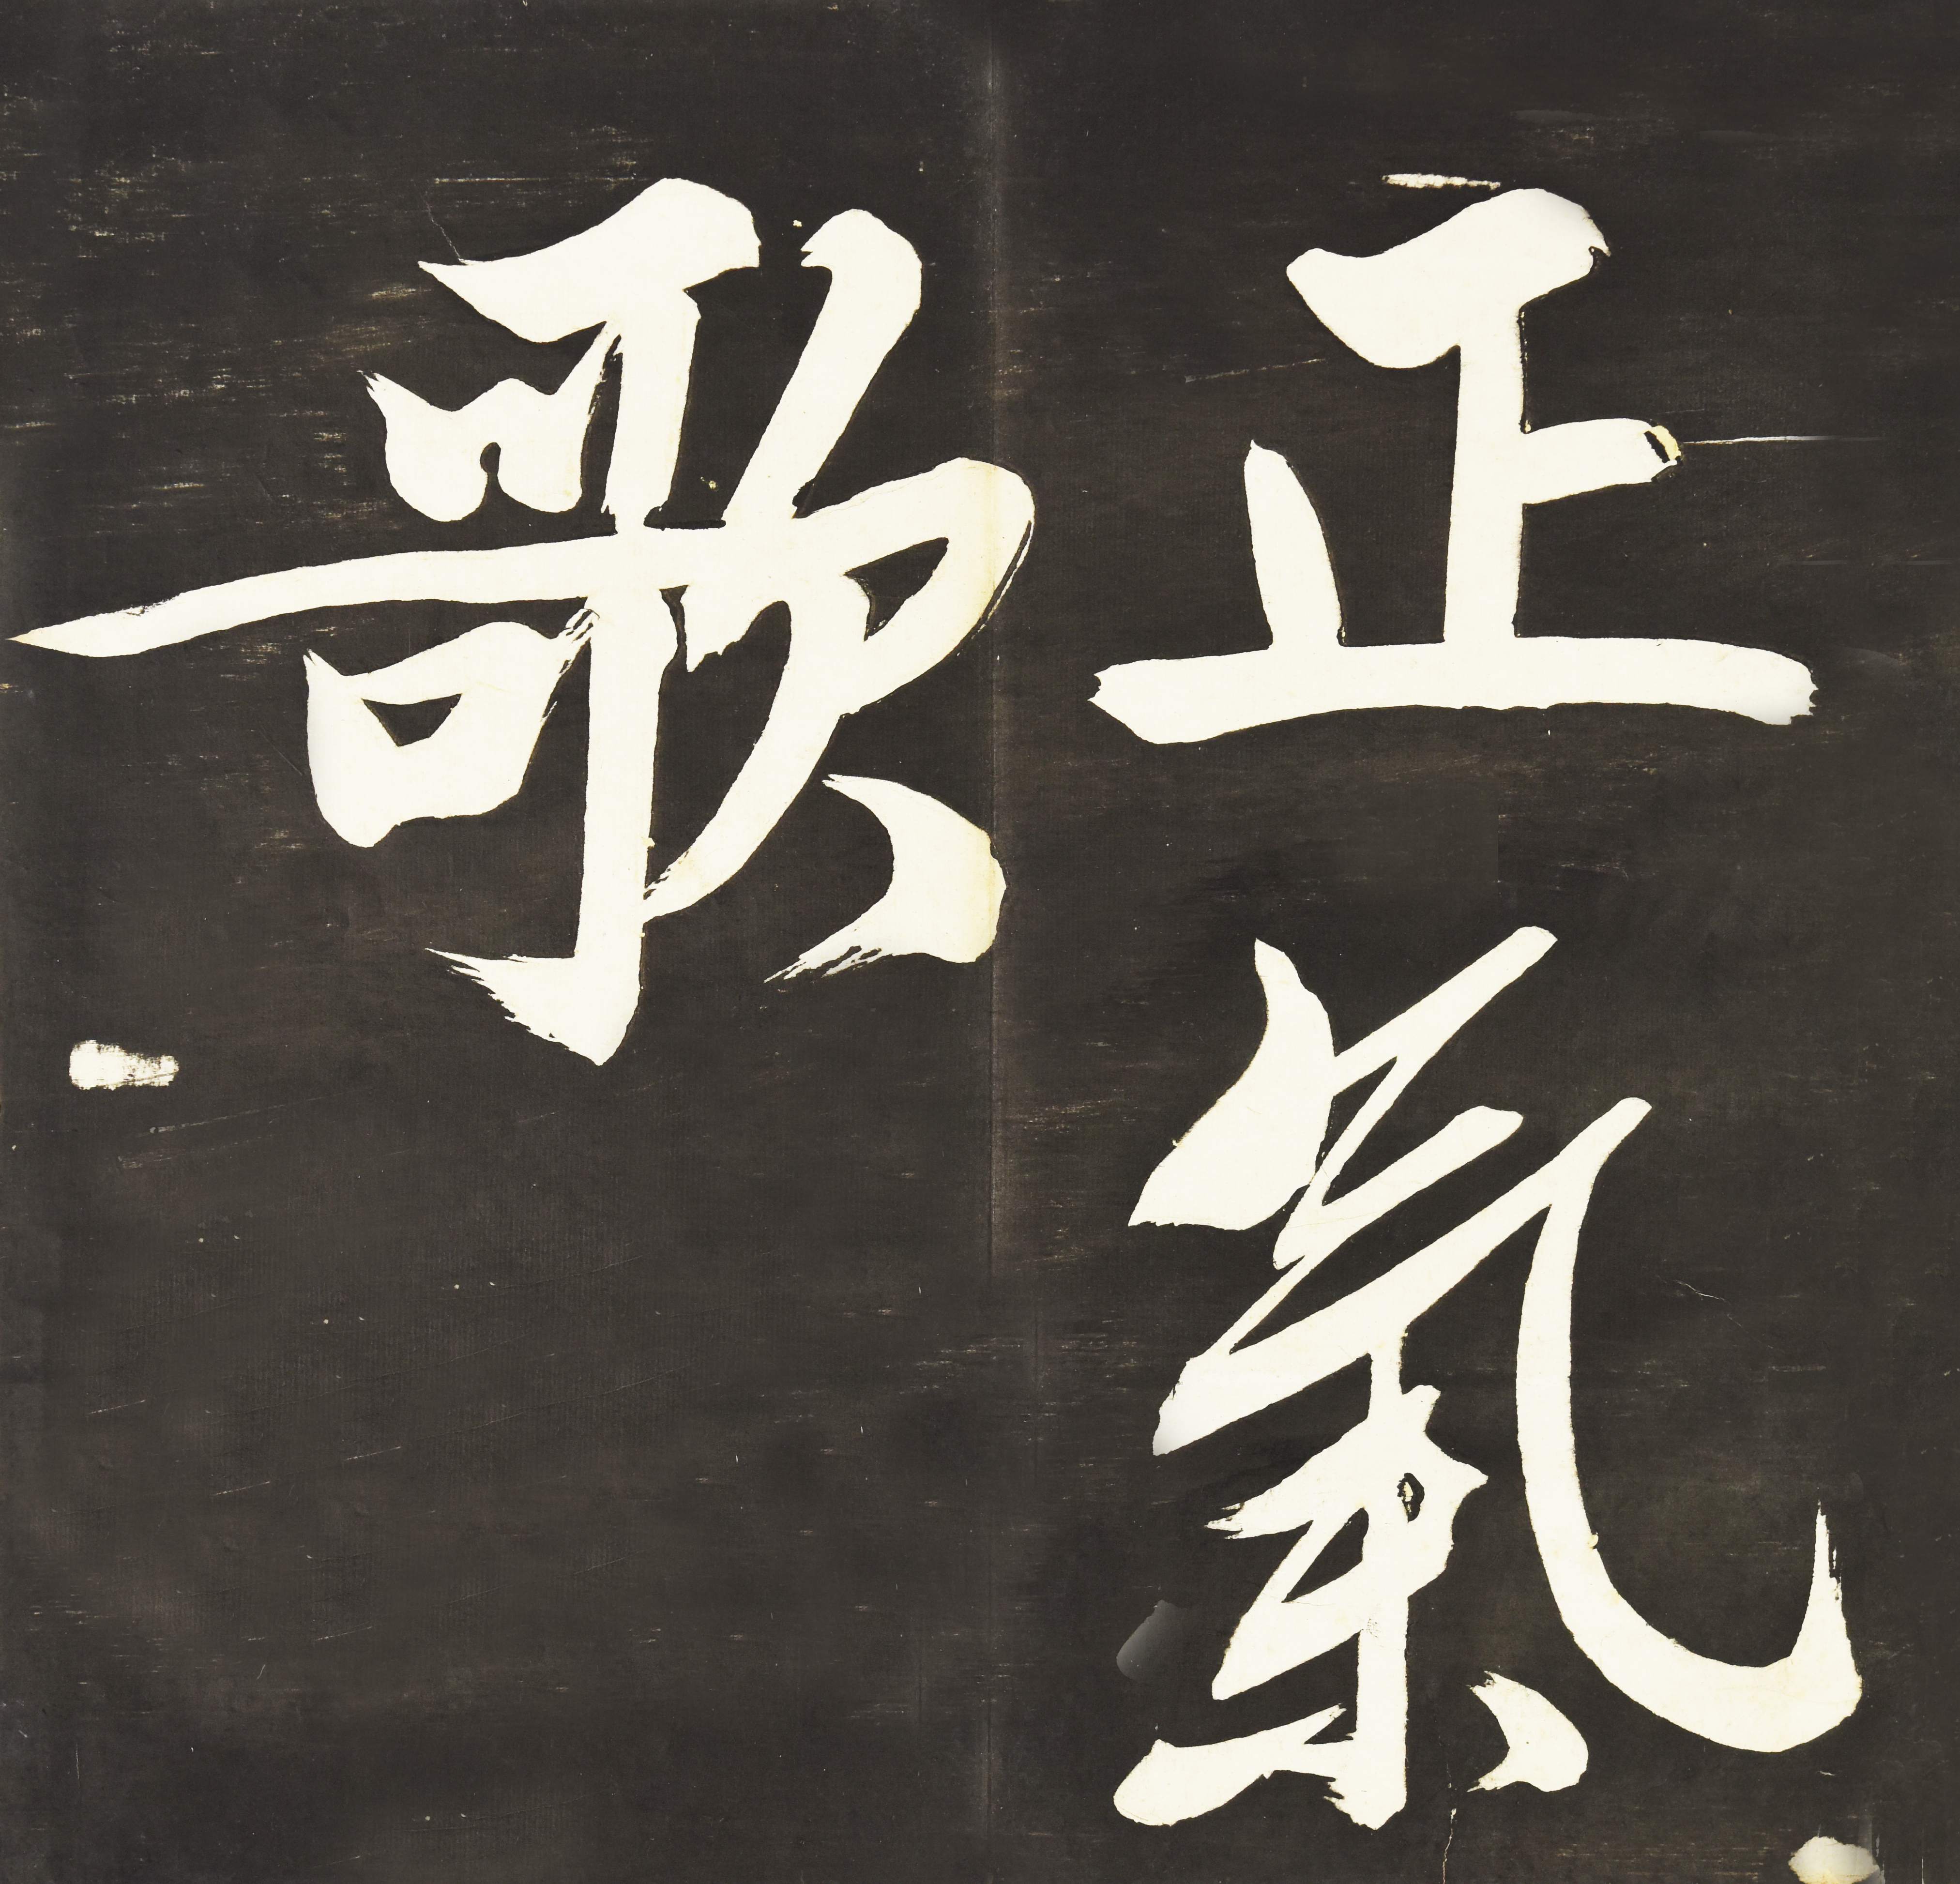 正氣
歌